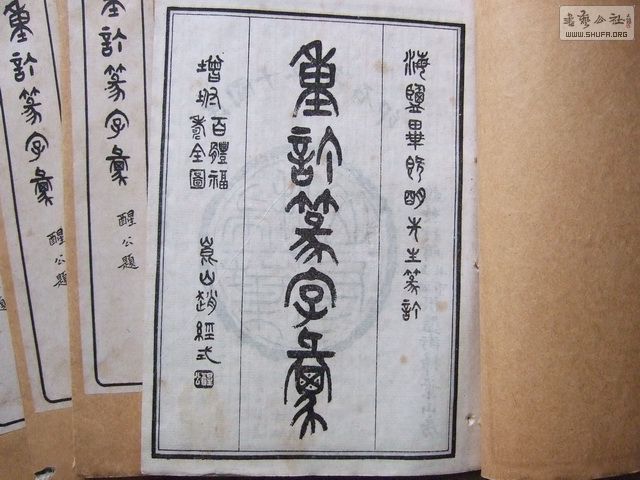 海鹽畢既明先生篆訂
重訂篆字彙
增
百體福
壽全圖
崑山趙經式
重訂篆字彙
醒公題
重訂篆字彙
醒公題
書藝公社
WWW.SHUFA.ORG